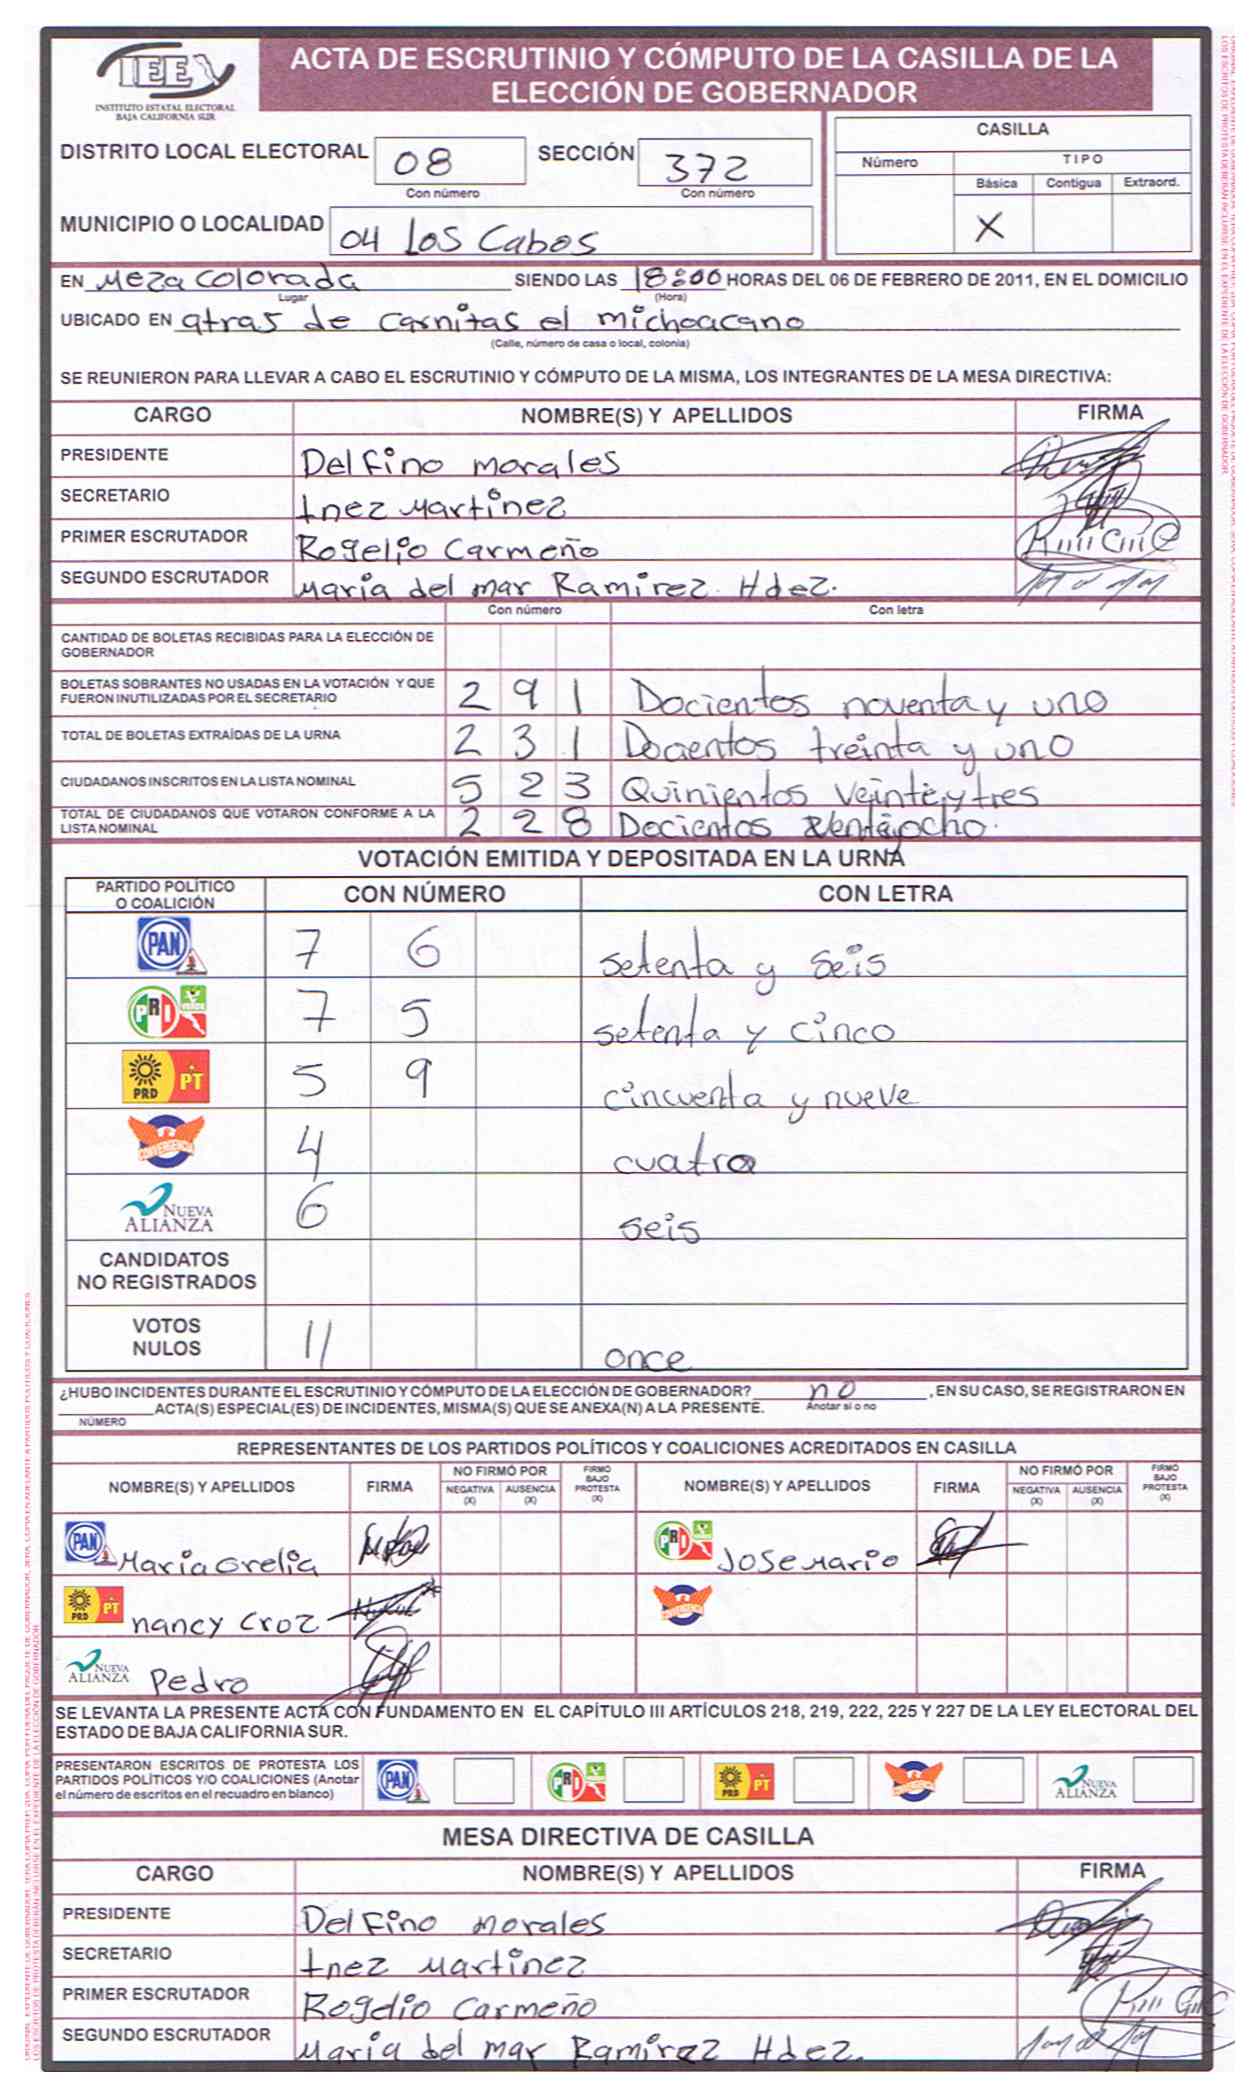 IEE
INSTITUTO ESTATAL ELECTORAL
BAJA CALIFORNIA SUR
ACTA DE ESCRUTINIO Y CÓMPUTO DE LA CASILLA DE LA
ELECCIÓN DE GOBERNADOR
DISTRITO LOCAL ELECTORAL 08 SECCIÓN 372
Con número Con número
MUNICIPIO O LOCALIDAD 04 Los Cabos
CASILLA
Número TIPO
Básica Contigua Extraord.
X
EN Meza Colorada SIENDO LAS 18:00 HORAS DEL 06 DE FEBRERO DE 2011, EN EL DOMICILIO
Lugar (Hora)
UBICADO EN atras de Carnitas el michoacano
(Calle, número de casa o local, colonia)
SE REUNIERON PARA LLEVAR A CABO EL ESCRUTINIO Y CÓMPUTO DE LA MISMA, LOS INTEGRANTES DE LA MESA DIRECTIVA:
CARGO NOMBRE(S) Y APELLIDOS FIRMA
PRESIDENTE Delfino morales
SECRETARIO Inez Martinez
PRIMER ESCRUTADOR Rogelio Carmeño
SEGUNDO ESCRUTADOR María del mar Ramirez. Hdez.
Con número Con letra
CANTIDAD DE BOLETAS RECIBIDAS PARA LA ELECCIÓN DE
GOBERNADOR
BOLETAS SOBRANTES NO USADAS EN LA VOTACIÓN Y QUE
FUERON INUTILIZADAS POR EL SECRETARIO 2 9 1 Docientos noventa y uno
TOTAL DE BOLETAS EXTRAÍDAS DE LA URNA 2 3 1 Docientos treinta y uno
CIUDADANOS INSCRITOS EN LA LISTA NOMINAL 5 2 3 Quinientos Veinteytres
TOTAL DE CIUDADANOS QUE VOTARON CONFORME A LA
LISTA NOMINAL 2 2 8 Docientos
VOTACIÓN EMITIDA Y DEPOSITADA EN LA URNA
PARTIDO POLÍTICO
O COALICIÓN CON NÚMERO CON LETRA
PAN 7 6 setenta y seis
PRI VERDE 7 5 setenta y cinco
PRD PT 5 9 cincuenta y nueve
CONVERGENCIA 4 cuatro
NUEVA ALIANZA 6 seis
CANDIDATOS
NO REGISTRADOS
VOTOS
NULOS 11 once
¿HUBO INCIDENTES DURANTE EL ESCRUTINIO Y CÓMPUTO DE LA ELECCIÓN DE GOBERNADOR? no , EN SU CASO, SE REGISTRARON EN
ACTA(S) ESPECIAL(ES) DE INCIDENTES, MISMA(S) QUE SE ANEXA(N) A LA PRESENTE. Anotar si o no
NÚMERO
REPRESENTANTES DE LOS PARTIDOS POLÍTICOS Y COALICIONES ACREDITADOS EN CASILLA
NOMBRE(S) Y APELLIDOS FIRMA NO FIRMÓ POR NEGATIVA (X) AUSENCIA (X) FIRMÓ BAJO PROTESTA (X) NOMBRE(S) Y APELLIDOS FIRMA NO FIRMÓ POR NEGATIVA (X) AUSENCIA (X) FIRMÓ BAJO PROTESTA (X)
PAN Maria Orelia PRI VERDE Jose Mario
PRD PT nancy Croz CONVERGENCIA
NUEVA ALIANZA Pedro
SE LEVANTA LA PRESENTE ACTA CON FUNDAMENTO EN EL CAPÍTULO III ARTÍCULOS 218, 219, 222, 225 Y 227 DE LA LEY ELECTORAL DEL
ESTADO DE BAJA CALIFORNIA SUR.
PRESENTARON ESCRITOS DE PROTESTA LOS
PARTIDOS POLÍTICOS Y/O COALICIONES (Anotar
el número de escritos en el recuadro en blanco) PAN PRI VERDE PRD PT CONVERGENCIA NUEVA ALIANZA
MESA DIRECTIVA DE CASILLA
CARGO NOMBRE(S) Y APELLIDOS FIRMA
PRESIDENTE Delfino morales
SECRETARIO Inez Martinez
PRIMER ESCRUTADOR Rogelio Carmeño
SEGUNDO ESCRUTADOR María del mar Ramirez Hdez.